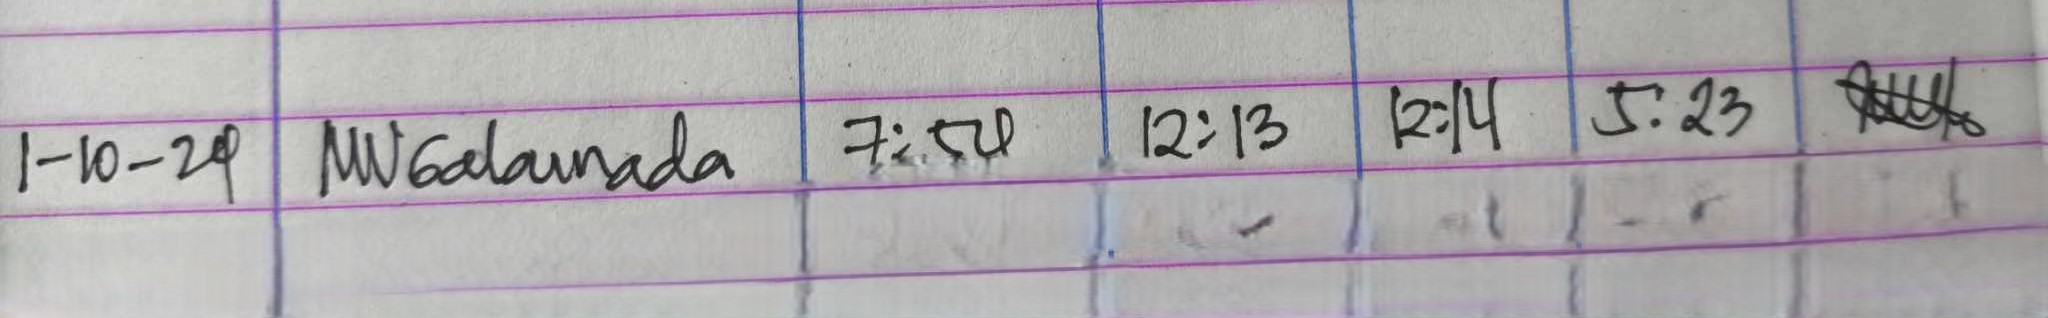 1-10-24 MVGalaunada 7:54 12:13 12:14 5:23